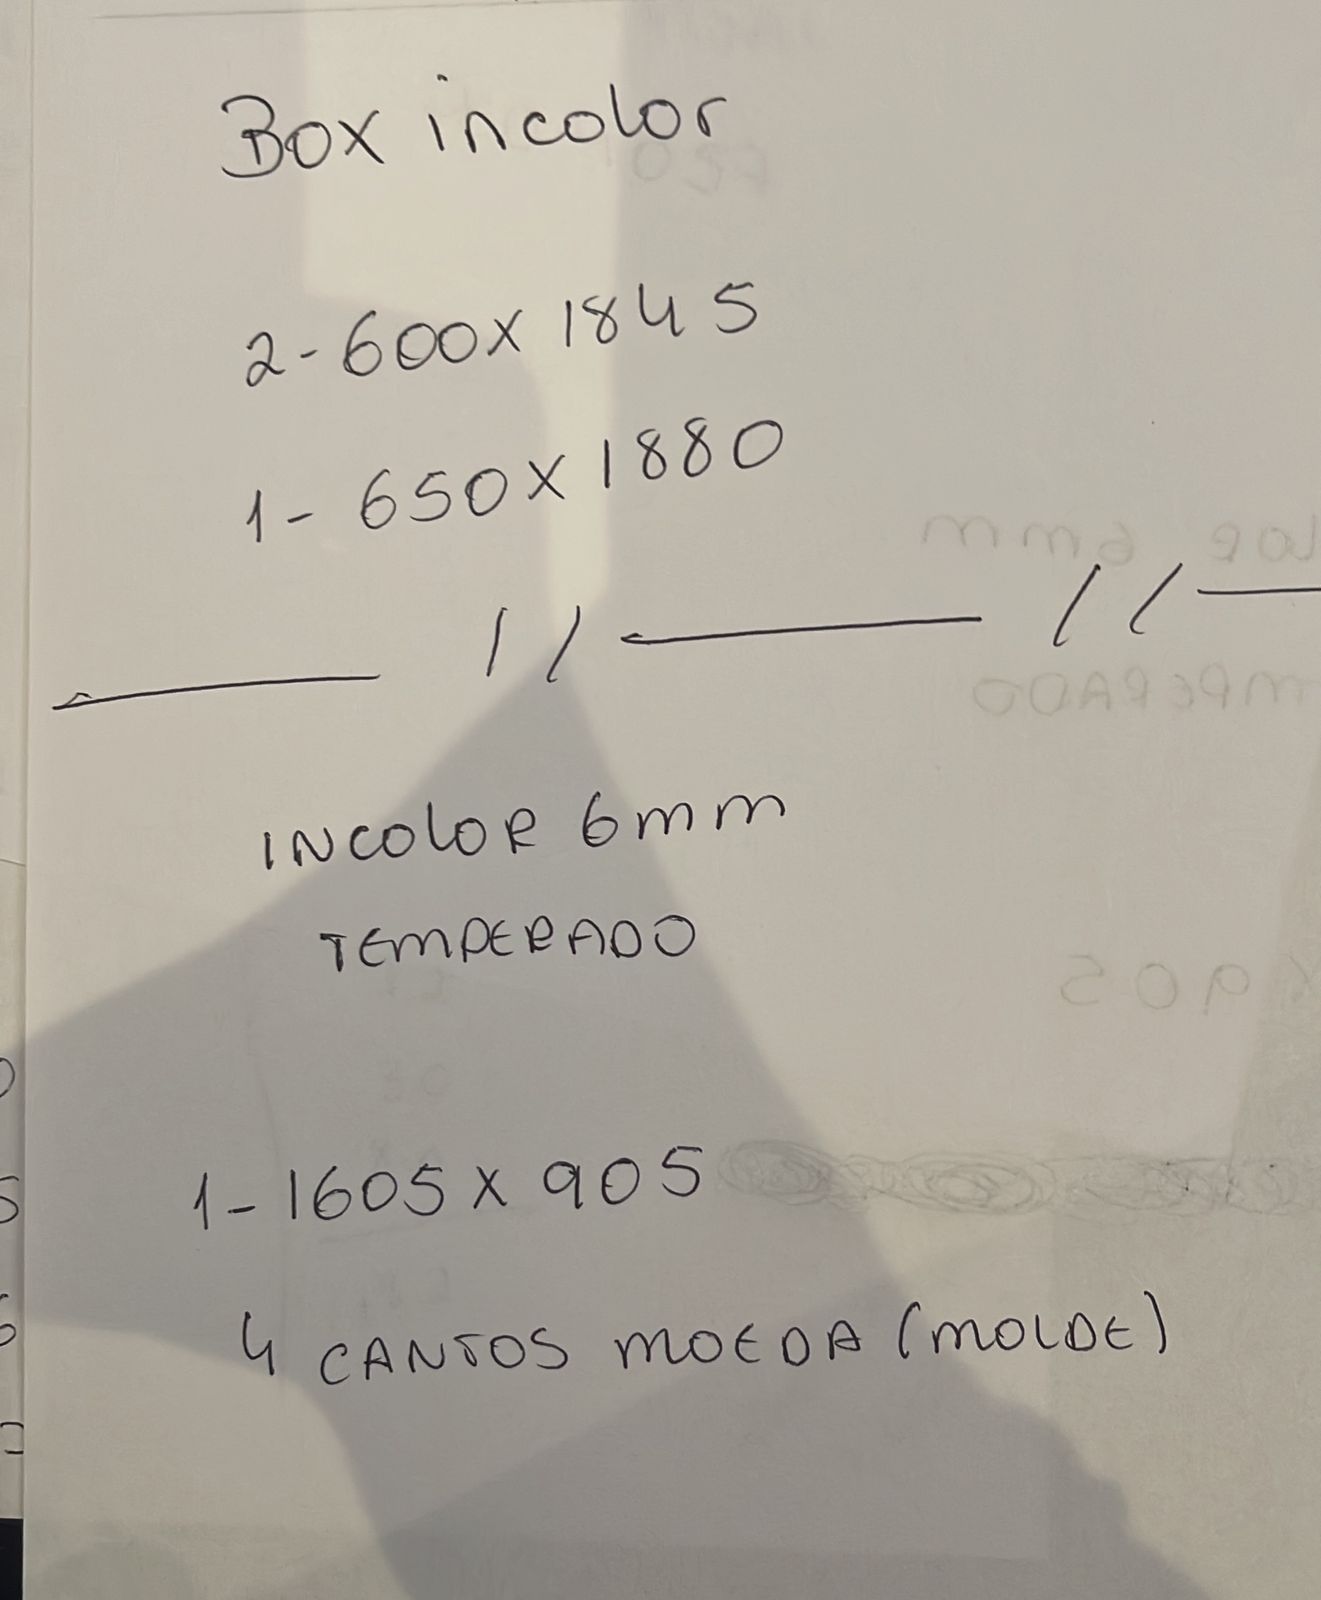 Box incolor
2-600x1845
1-650x1880
// //
INCOLOR 6mm
TEMPERADO
1-1605x905
4 CANTOS MOEDA (MOLDE)